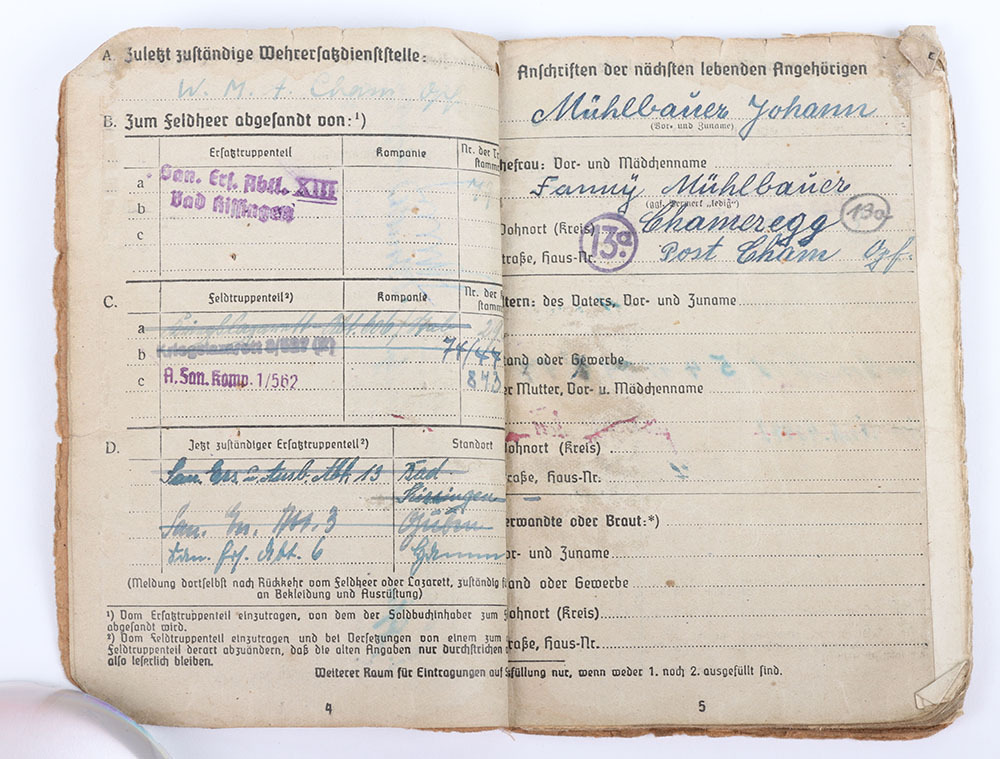 A. Zuletzt zuständige Wehrersatzdienststelle:
W. M. A. Cham
B. Zum Feldheer abgesandt von:¹)
Ersatztruppenteil Kompanie Nr. der
a San. Ers. Abtl. XIII
b Bad Kissingen
c
C. Feldtruppenteil²) Kompanie Nr. der
stamm
a
b 74/44
c A. San. Komp. 1/562 843
D. Jetzt zuständiger Ersatztruppenteil²) Standort
San. Ers. u. Ausb. Abt. 13 Bad
Kissingen
San. Ers. Abt. 3 Guben
San. Ers. Abt. 6 Hamm
(Meldung dortselbst nach Rückkehr vom Feldheer oder Lazarett, zuständig f
an Bekleidung und Ausrüstung)
¹) Vom Ersatztruppenteil einzutragen, von dem der Soldbuchinhaber zum
abgesandt wird.
²) Vom Feldtruppenteil einzutragen und bei Versetzungen von einem zum
Feldtruppenteil derart abzuändern, daß die alten Angaben nur durchstrichen
also leserlich bleiben.
Weiterer Raum für Eintragungen auf
4
Anschriften der nächsten lebenden Angehörigen
Mühlbauer Johann
(Vor- und Zuname)
hefrau: Vor- und Mädchenname
Fanny Mühlbauer
(ggf. Vermerk „ledig")
ohnort (Kreis) 13a Chameregg 13a
traße, Haus-Nr. Post Cham Opf.
ltern: des Vaters, Vor- und Zuname
tand oder Gewerbe
er Mutter, Vor- u. Mädchenname
ohnort (Kreis)
raße, Haus-Nr.
erwandte oder Braut:*)
or- und Zuname
and oder Gewerbe
ohnort (Kreis)
raße, Haus-Nr.
sfüllung nur, wenn weder 1. noch 2. ausgefüllt sind.
5